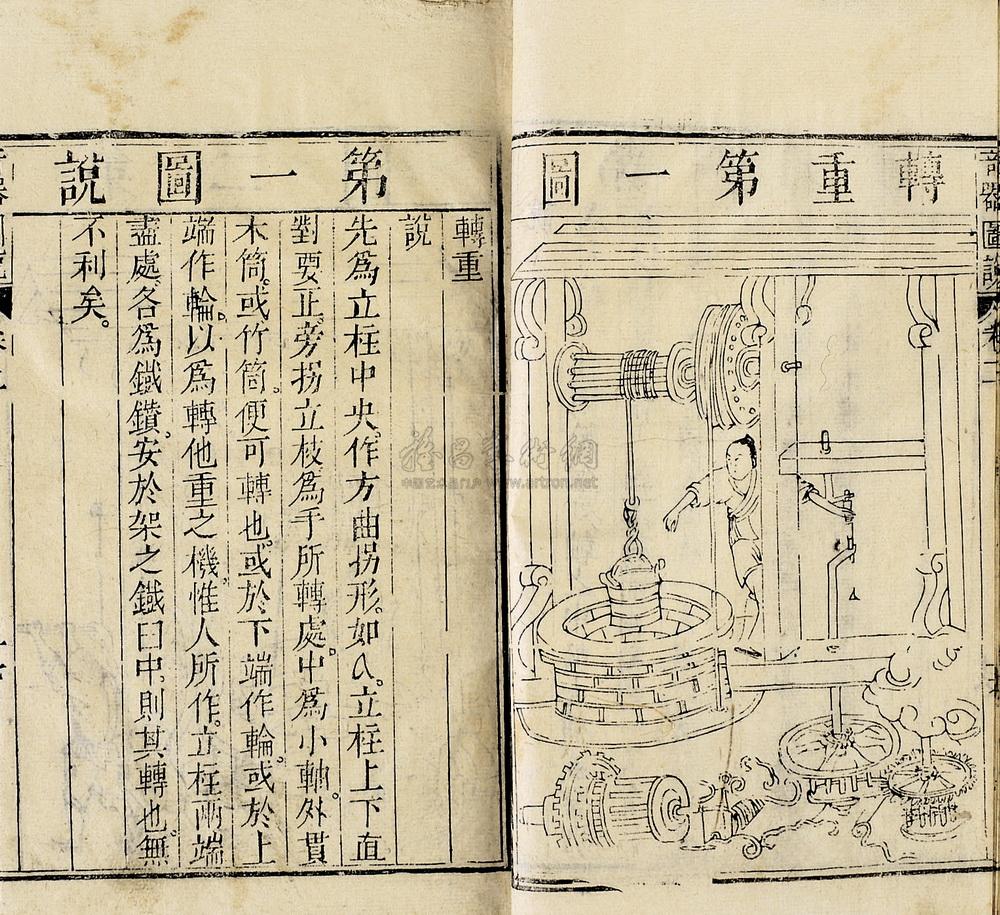 奇器圖說 卷二
轉重第一圖
古
a
第一圖說
轉重
說
先爲立柱中央。作方曲拐形。如a。立柱上下直
對要正。旁拐立枝爲手所轉處。中爲小軸。外貫
木筒。或竹筒。便可轉也。或於下端作輪。或於上
端作輪。以爲轉他重之機。惟人所作。立柱兩端
盡處。各爲鐵鑚。安於架之鐵臼中。則其轉也。無
不利矣。
雅昌藝術網
中国艺术品门户 www.artron.net